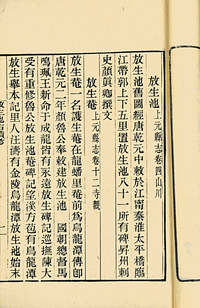 放生池 上元縣志卷四山川
放生池舊圖經唐乾元中敕於江甯秦淮太平橋臨
江帶郭上下五里置放生池八十一所有碑昇州刺
史顏眞卿撰文
放生菴 上元縣志卷十二寺觀
放生菴一名護生菴在龍蟠里菴前爲烏龍潭傳卽
唐乾元二年顏魯公奉敕建放生池 國朝總督馬
鳴珮王新命于成龍皆有永遠放生碑記巡撫陳大
受有重修魯公放生池菴碑記望溪方苞有烏龍潭
放生舉本記里人汪濤有金陵烏龍潭放生池始末